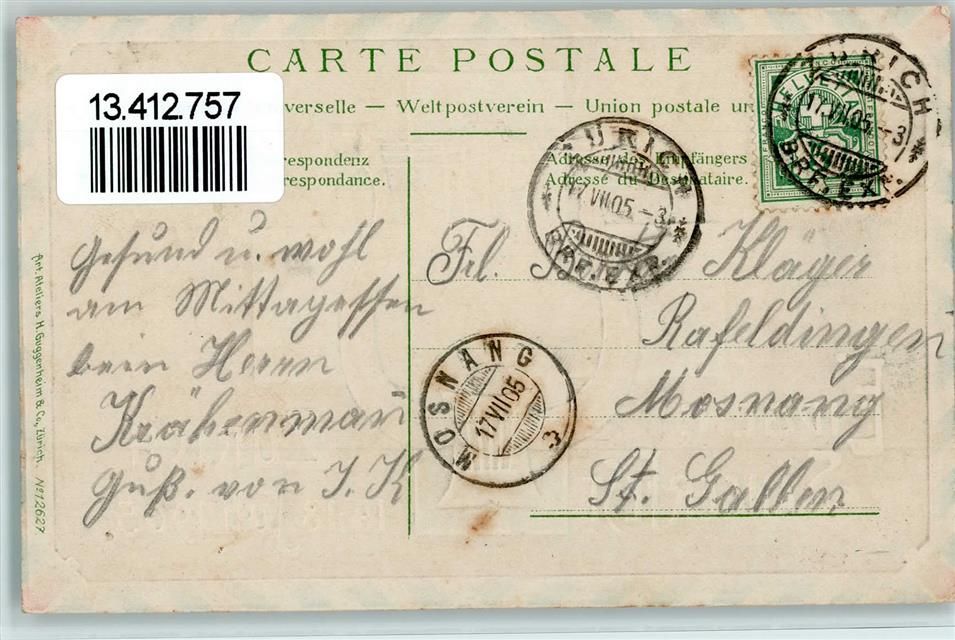 CARTE POSTALE
13.412.757
verselle — Weltpostverein — Union postale un
respondenz
respondance.
Adresse des Empfängers
Adresse du Destinataire.
HELVETIA
FRANCO
ZÜRICH
17.VII.05.-3
BRF. EXP.
ZÜRICH
17.VII.05.-3
BRF. EXP.
Gesund u. wohl
am Mittagessen
beim Herrn
Krähenmann
Gruß. von J. K
Frl. Kläger
Rafeldingen
Mosnang
St. Gallen
MOSNANG
17 VII 05
3
Art. Ateliers H. Guggenheim & Co., Zürich. No 12627